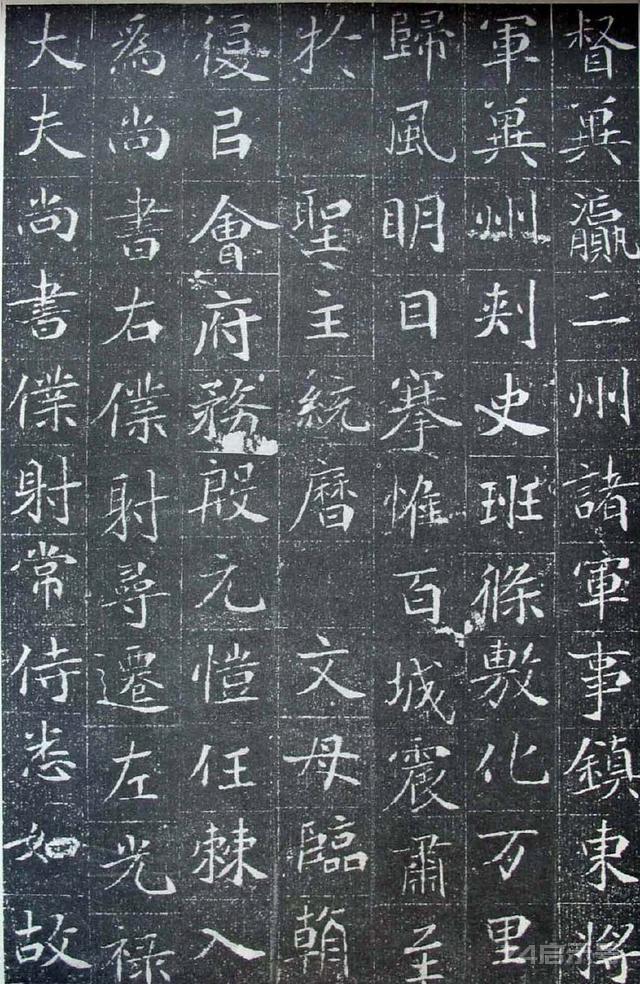 督冀瀛二州諸軍事鎮東將
軍冀州刺史班條敷化万里
歸風明目搴惟百城震肅至
於聖主統曆文母臨朝
復召會府務殷元愷任棘入
為尚書右僕射尋遷左光祿
大夫尚書僕射常侍悉如故